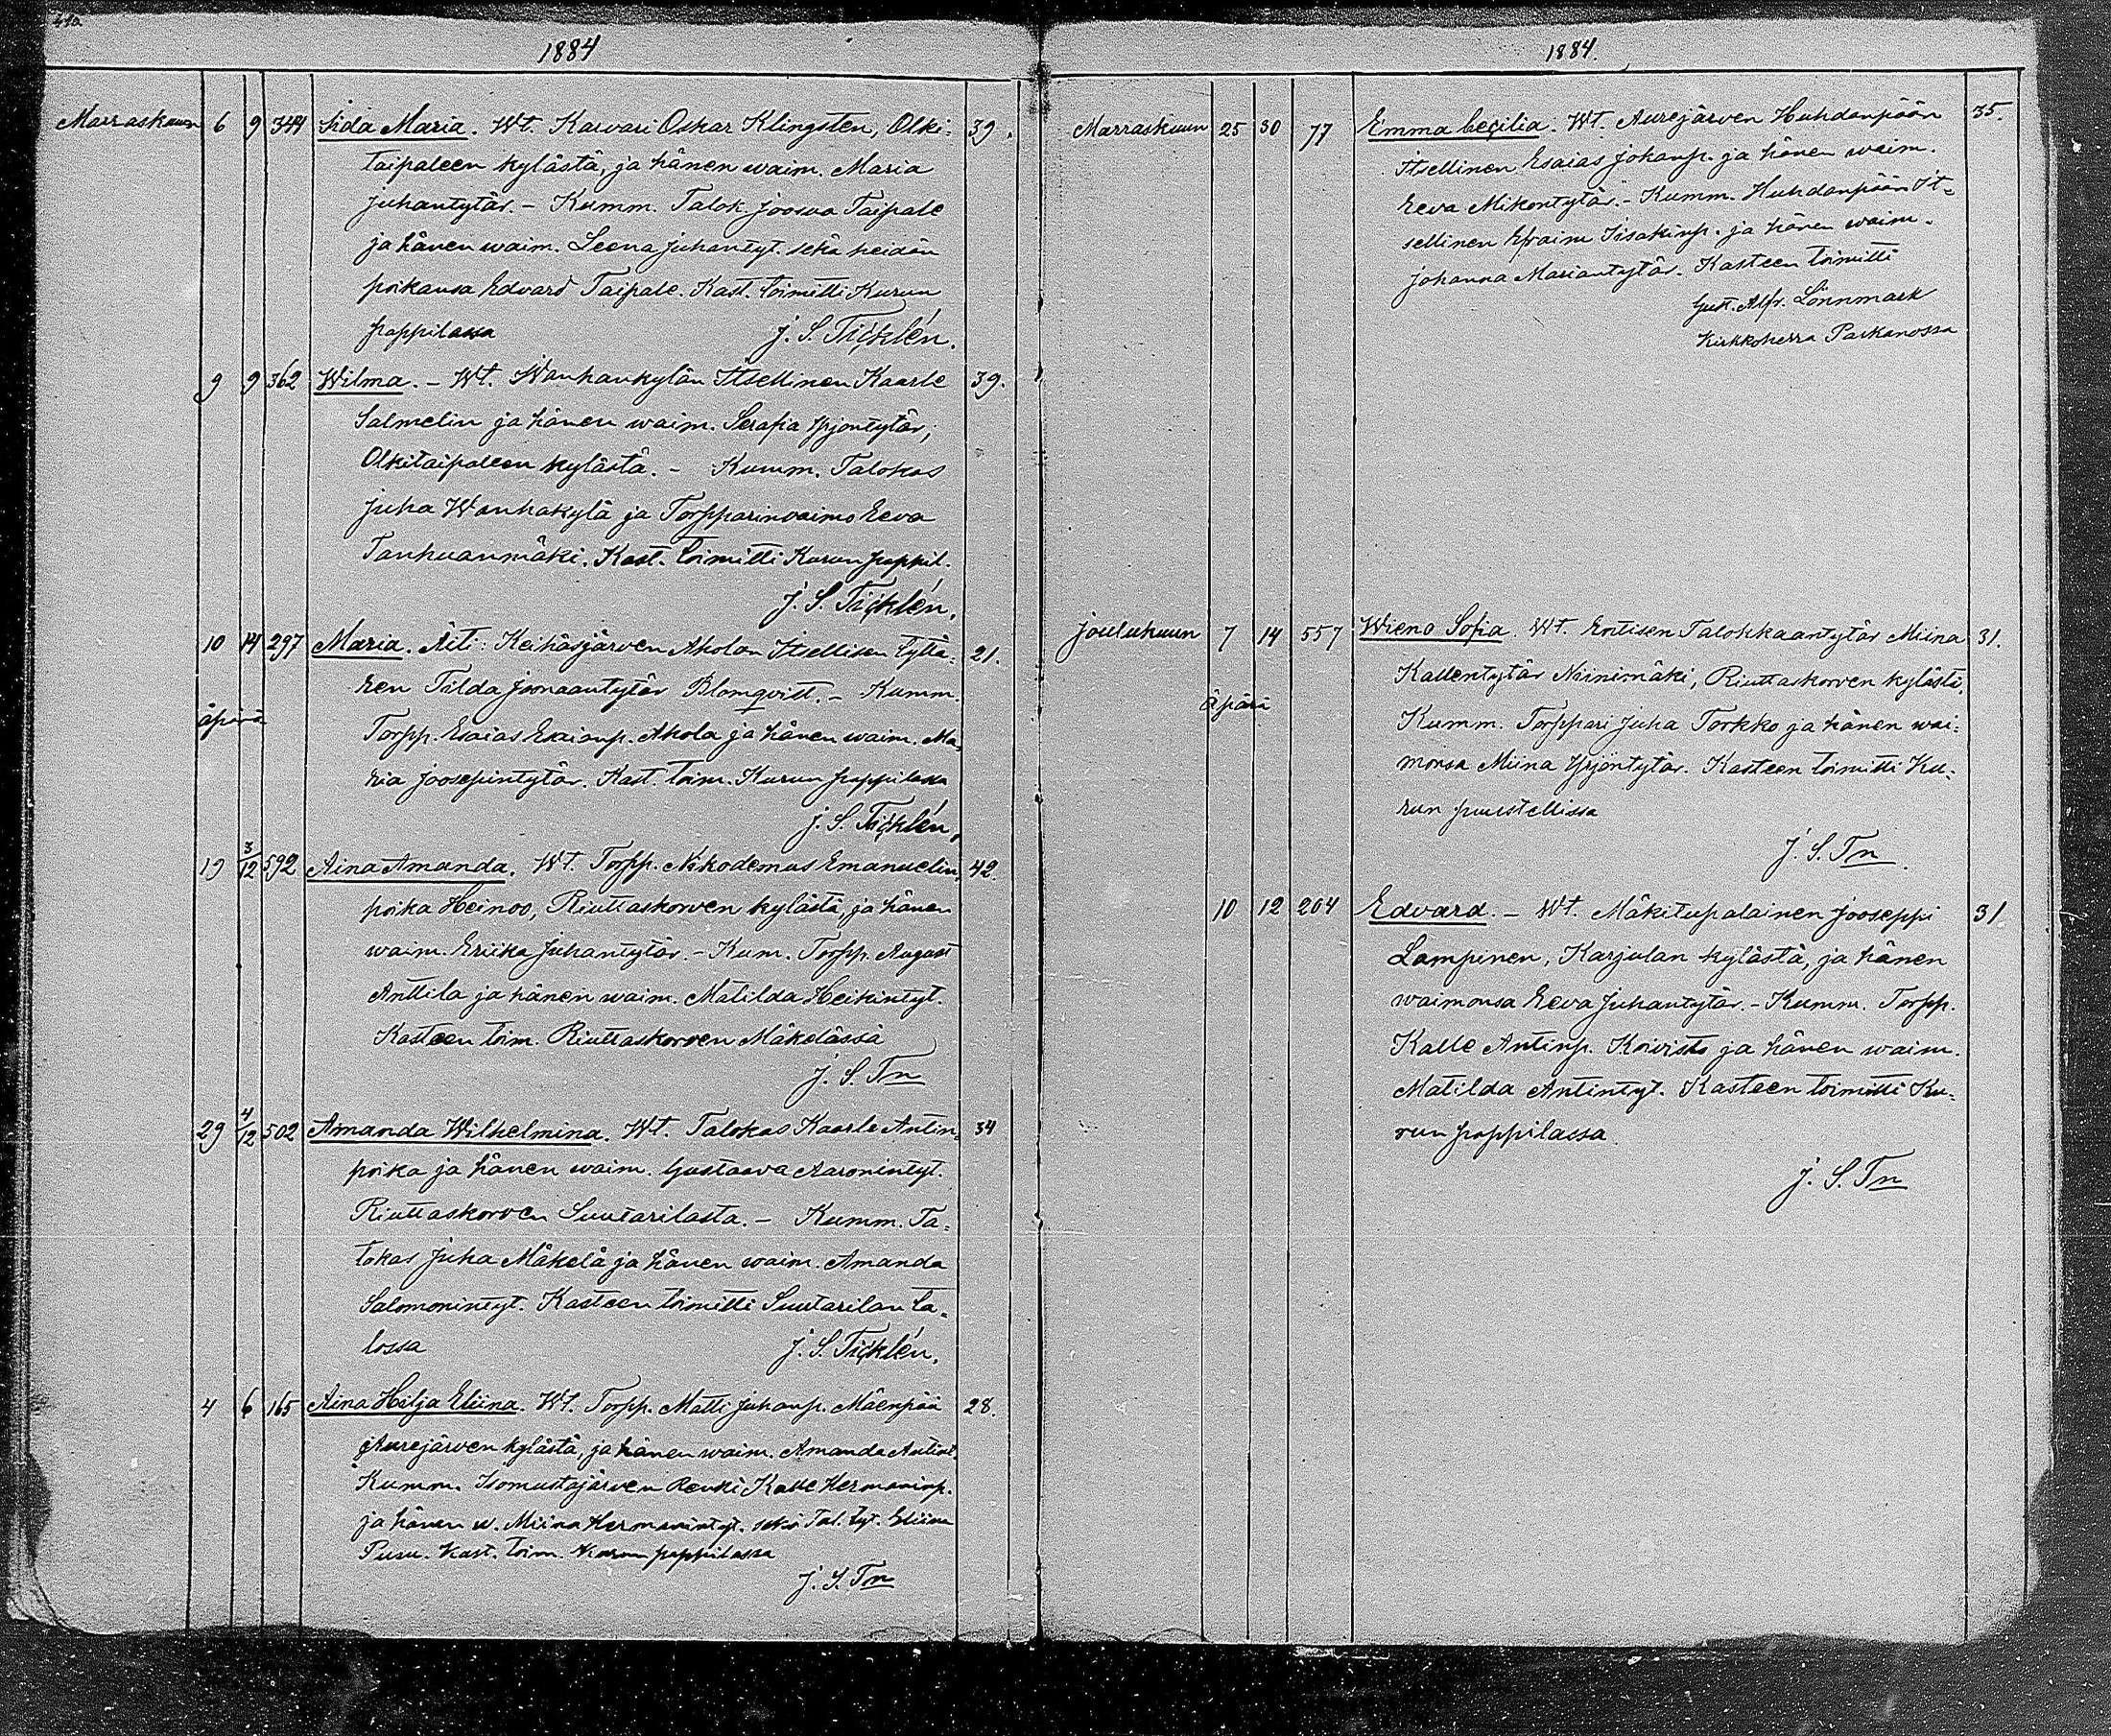 1884
Marraskuun 6 9 344 Iida Maria. Wt. Karvari Oskar Klingsten, Olki- 39.
taipaleen kylästä, ja hänen waim. Maria
Juhantytär. - Kumm. Talok. Joosua Taipale
ja hänen waim. Leena Juhantyt. sekä heidän
poikansa Edvard Taipale. Kast. toimitti Kurun
pappilassa J. S. Ticklén.
9 9 362 Wilma. - Wt. Wanhankylän Itsellinen Kaarle 39.
Salmelin ja hänen waim. Serafia Yrjöntytär,
Olkitaipaleen kylästä. - Kumm. Talokas
Juha Wanhakylä ja Torpparinvaimo Eeva
Tanhuanmäki. Kast. toimitti Kurun pappil.
J. S. Ticklén.
10 14 297 Maria. Äiti: Keihäsjärven Aholan Itsellisen tyttä- 21.
ren Tilda Joonaantytär Blomqvist. - Kumm.
äpärä
Torpp. Esaias Esaianp. Ahola ja hänen waim. Ma-
ria Joosepintytär. Kast. toim. Kurun pappilassa
J. S. Ticklén.
19 3/12 592 Aina Amanda. Wt. Torpp. Nikodemus Emanuelin- 42.
poika Heinoo, Riuttaskorven kylästä, ja hänen
waim. Eriika Juhantytär. - Kum. Torpp. August
Anttila ja hänen waim. Matilda Heikintyt.
Kasteen toim. Riuttaskorven Mäkelässä
J. S. Tn
29 4/12 502 Amanda Wilhelmina. Wt. Talokas Kaarle Antin- 34
poika ja hänen waim. Gustaava Aaronintyt.
Riuttaskorven Suutarilasta. - Kumm. Ta-
lokas Juha Mäkelä ja hänen waim. Amanda
Salomonintyt. Kasteen toimitti Suutarilan ta-
lossa J. S. Ticklén.
4 6 165 Aina Hilja Eliina. Wt. Torpp. Matti Juhanp. Mäenpää 28.
Aurejärven kylästä, ja hänen waim. Amanda Antint.
Kumm. Isomustajärven Renki Kalle Hermaninp.
ja hänen w. Miina Hermanintyt. sekä Tal. tyt. Eliina
Pusu. Kast. toim. Kurun pappilassa
J. S. Tn
1884.
Marraskuun 25 30 77 Emma Cecilia. Wt. Aurejärven Huhdanpään 35.
Itsellinen Esaias Johanp. ja hänen waim.
Eeva Mikontytär. - Kumm. Huhdanpään It-
sellinen Efraim Iisakinp. ja hänen waim.
Johanna Mariantytär. Kasteen toimitti
Gust. Alfr. Lönnmark
Kirkkoherra Parkanossa
Joulukuun 7 14 557 Wieno Sofia. Wt. Entisen Talokkaantytär Miina 31.
Kallentytär Niinimäki, Riuttaskorven kylästä,
Äpärä
Kumm. Torppari Juha Torkko ja hänen wai-
monsa Miina Yrjöntytär. Kasteen toimitti Ku-
run puustellissa
J. S. Tn
10 12 204 Edvard. - Wt. Mäkitupalainen Jooseppi 31
Lampinen, Karjulan kylästä, ja hänen
waimonsa Eeva Juhantytär. - Kumm. Torpp.
Kalle Antinp. Koivisto ja hänen waim.
Matilda Antintyt. Kasteen toimitti Ku-
run pappilassa.
J. S. Tn